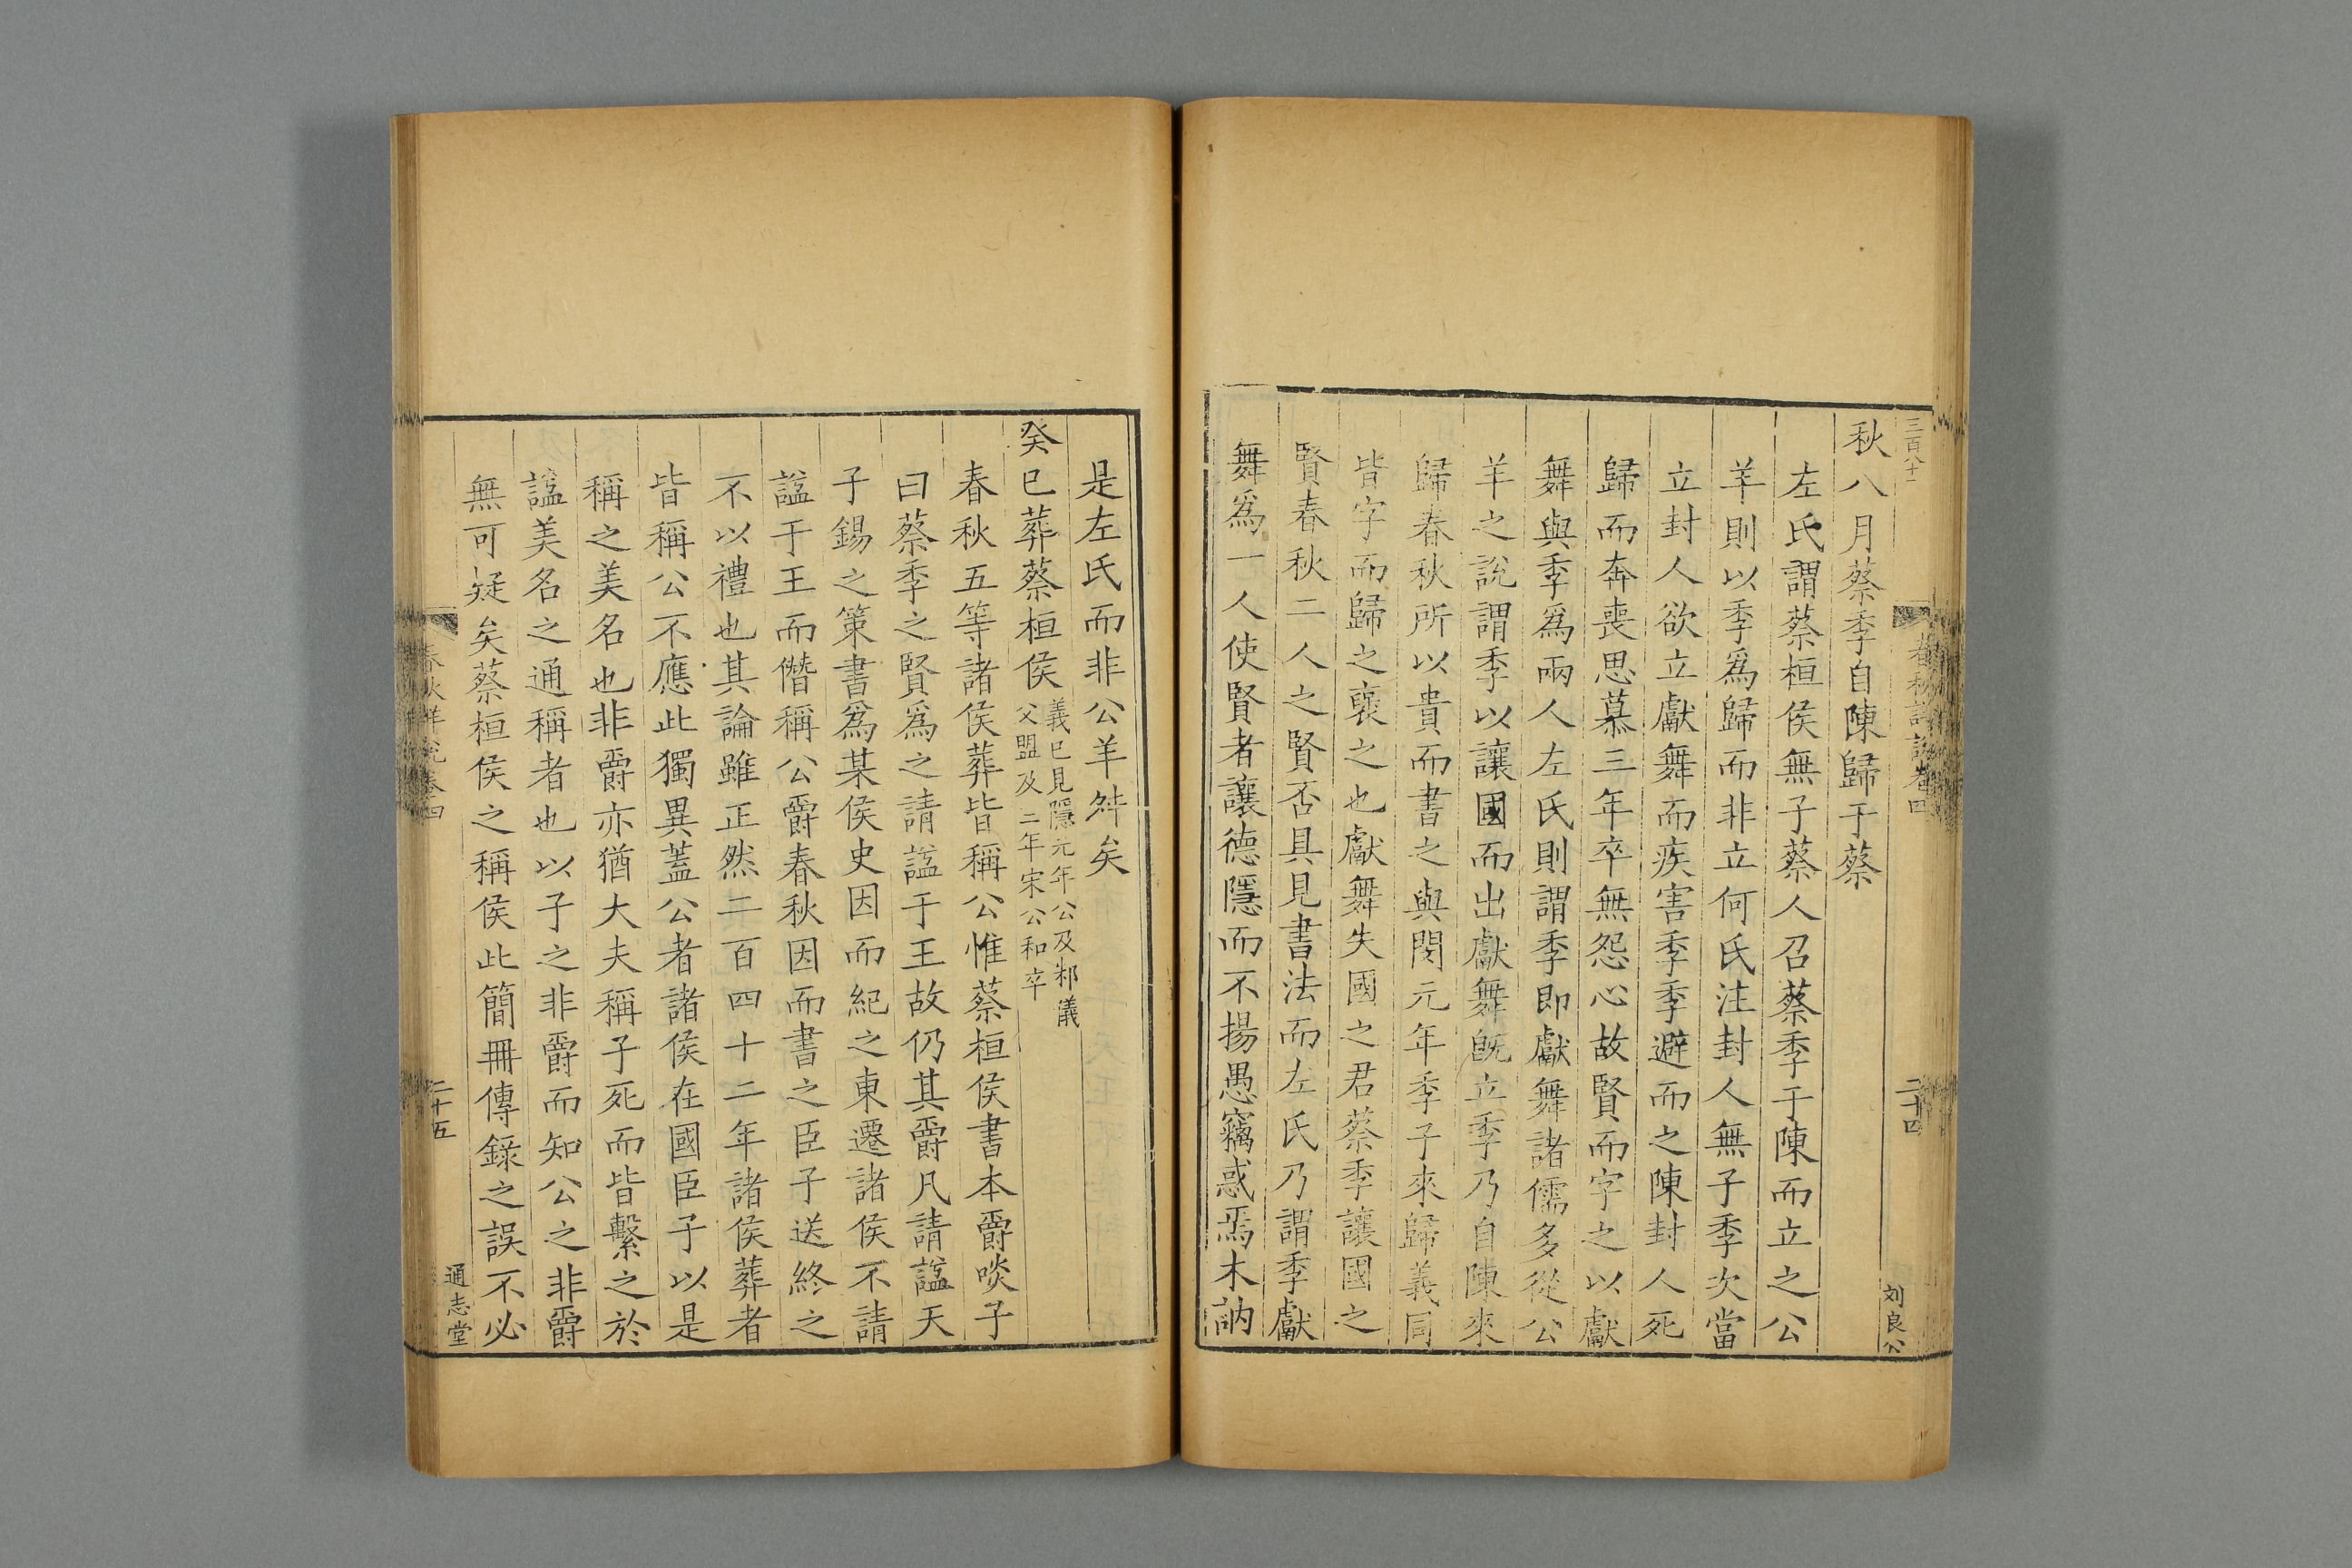 三百八十一
春秋詳說卷四
二十四
刘良公
秋八月蔡季自陳歸于蔡
左氏謂蔡桓侯無子蔡人召蔡季于陳而立之公
羊則以季爲歸而非立何氏注封人無子季次當
立封人欲立獻舞而疾害季季避而之陳封人死
歸而奔喪思慕三年卒無怨心故賢而字之以獻
舞與季爲兩人左氏則謂季即獻舞諸儒多從公
羊之說謂季以讓國而出獻舞旣立季乃自陳來
歸春秋所以貴而書之與閔元年季子來歸義同
皆字而歸之褒之也獻舞失國之君蔡季讓國之
賢春秋二人之賢否具見書法而左氏乃謂季獻
舞爲一人使賢者讓德隱而不揚愚竊惑焉木訥
是左氏而非公羊舛矣
癸巳葬蔡桓侯義已見隱元年公及邾儀
父盟及二年宋公和卒
春秋五等諸侯葬皆稱公惟蔡桓侯書本爵啖子
曰蔡季之賢爲之請諡于王故仍其爵凡請諡天
子錫之策書爲某侯史因而紀之東遷諸侯不請
諡于王而僭稱公爵春秋因而書之臣子送終之
不以禮也其論雖正然二百四十二年諸侯葬者
皆稱公不應此獨異蓋公者諸侯在國臣子以是
稱之美名也非爵亦猶大夫稱子死而皆繫之於
諡美名之通稱者也以子之非爵而知公之非爵
無可疑矣蔡桓侯之稱侯此簡冊傳錄之誤不必
春秋詳說卷四
二十五
通志堂